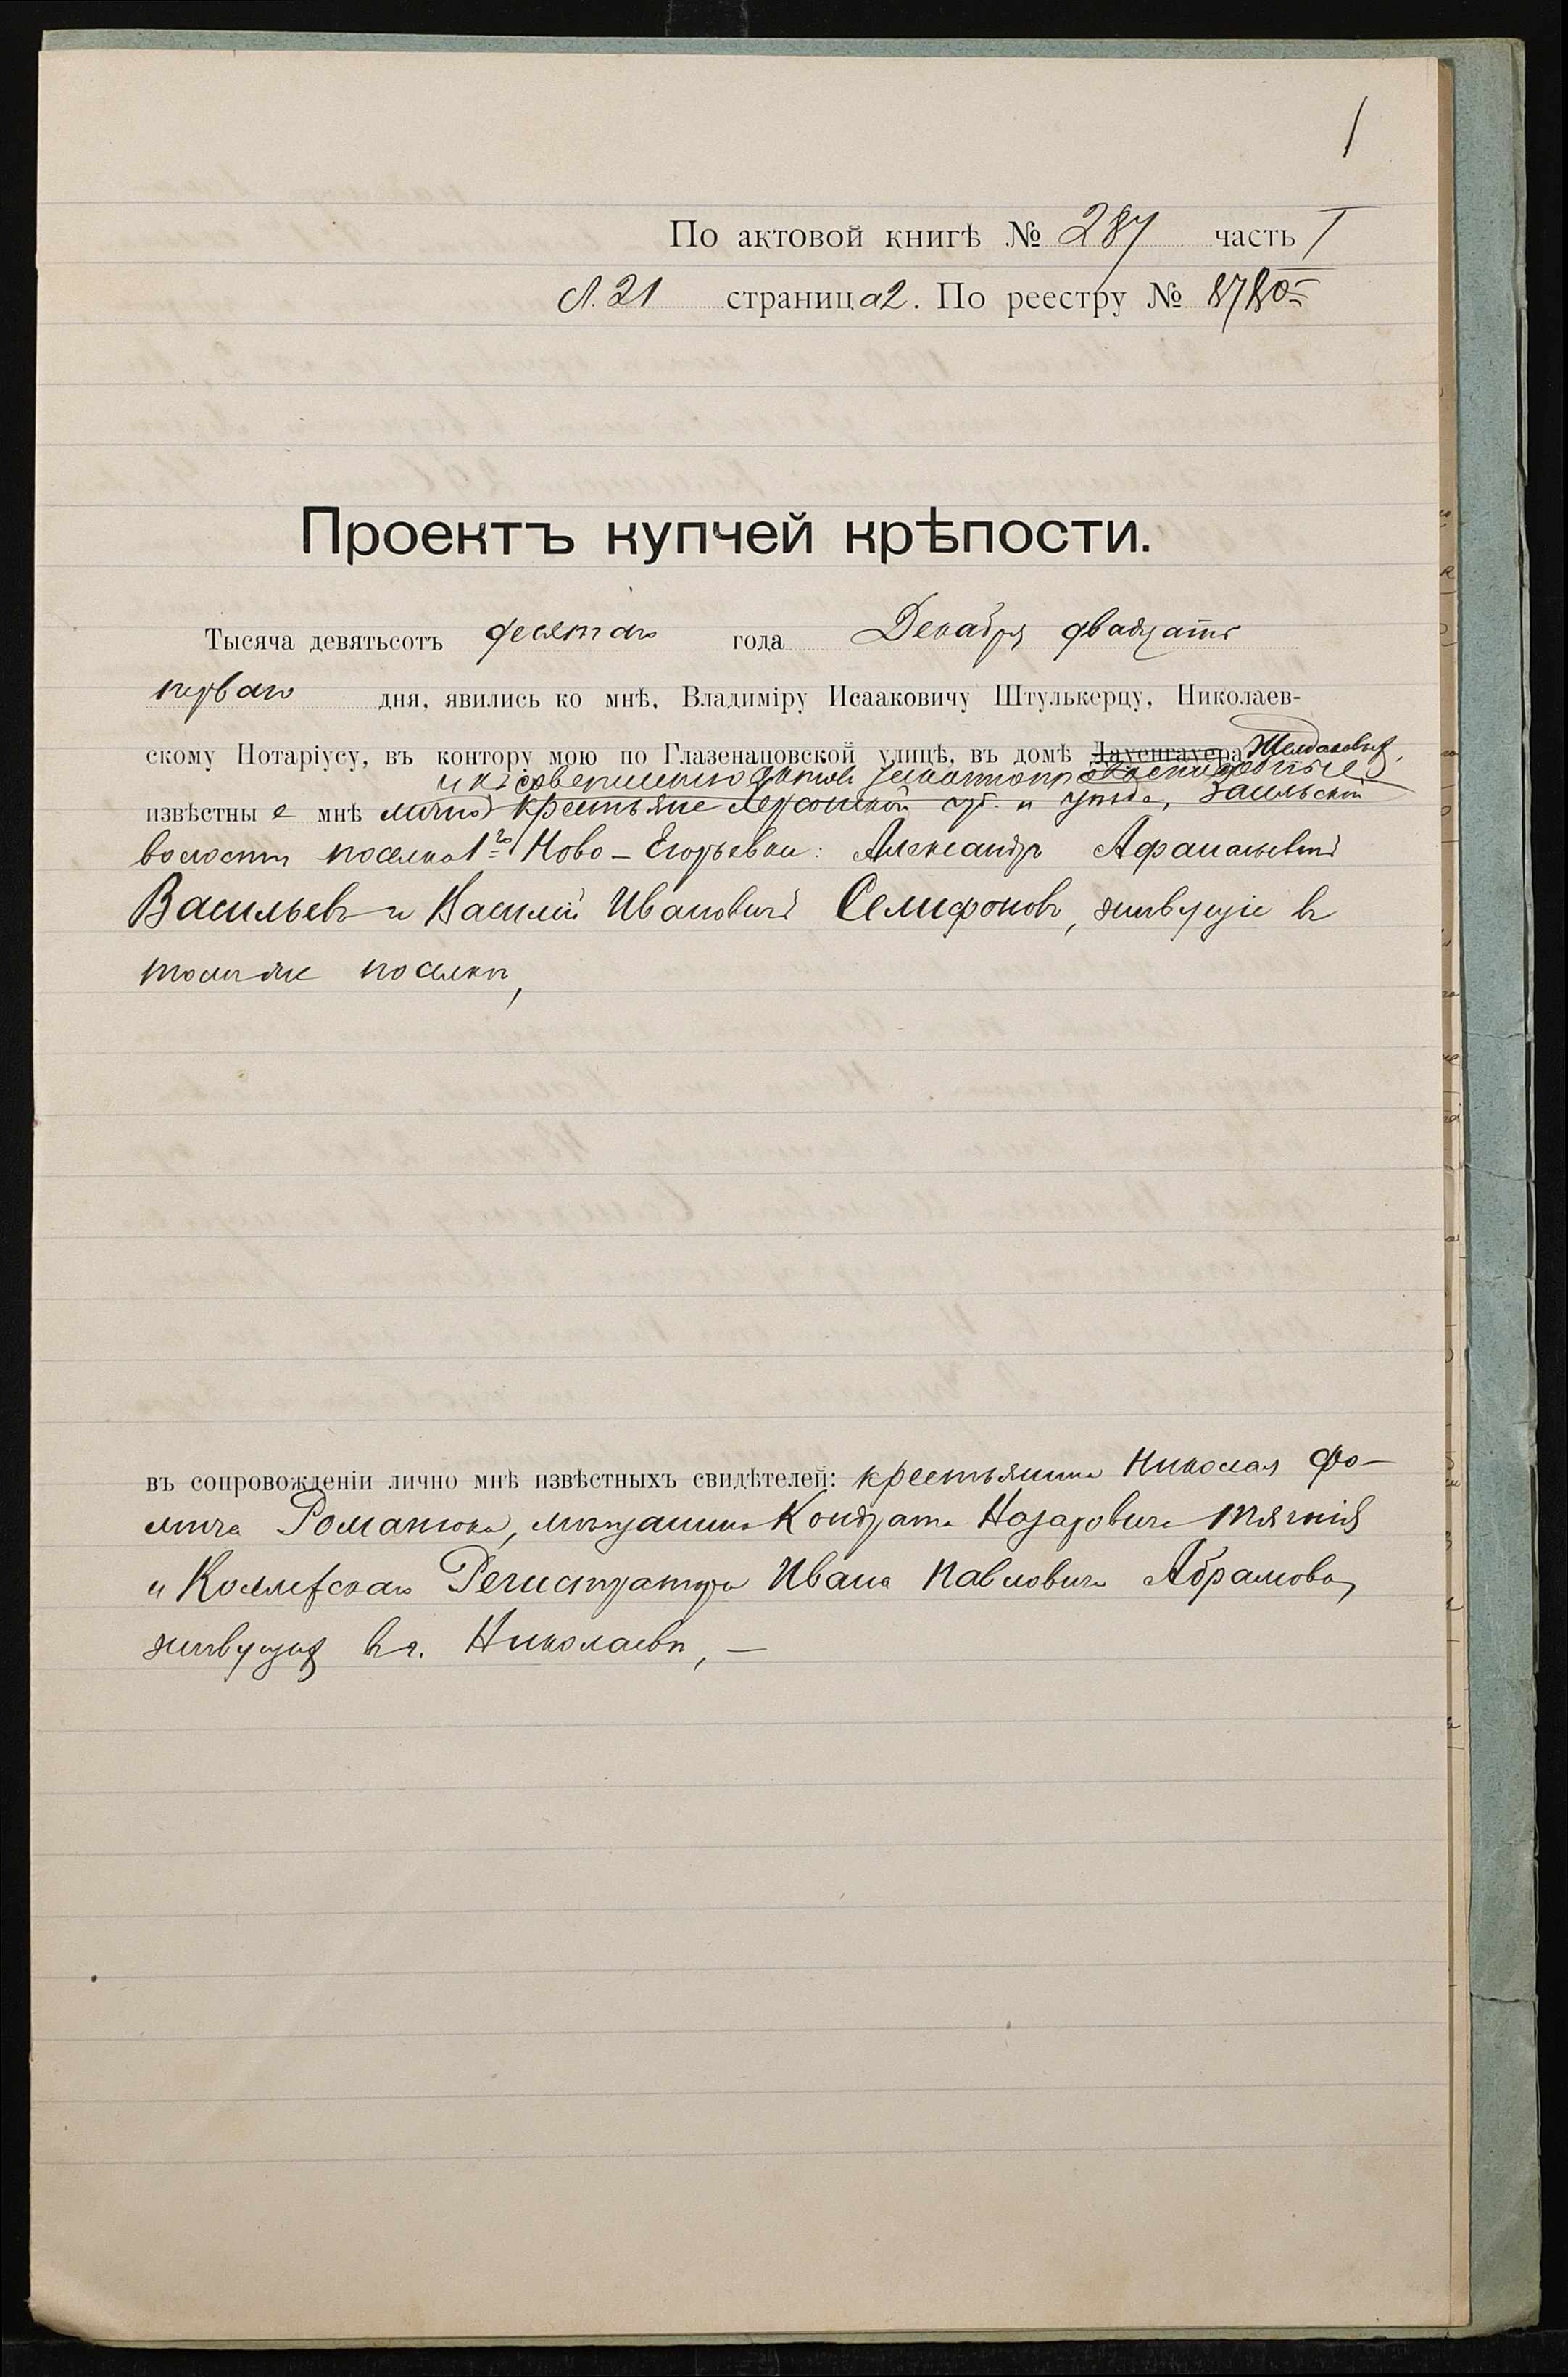 1
По актовой книгѣ № 287 часть I
Л. 21 страница 2. По реестру № 8780
Проектъ купчей крѣпости.
Тысяча девятьсотъ десятаго года Декабря двадцать
перваго дня, явились ко мнѣ, Владиміру Исааковичу Штулькерцу, Николаев-
скому Нотаріусу, въ контору мою по Глазенаповской улицѣ, въ домѣ
и къ совершенію актовъ законную правоспособные
извѣстны е мнѣ лично крестьяне Херсонской губ. и уѣзда, Засельской
волости поселка 1го Ново-Егорьевки: Александръ Афанасьевичъ
Васильевъ и Василій Ивановичъ Селифоновъ, живущіе въ
томъ же поселкѣ,
въ сопровожденіи лично мнѣ извѣстныхъ свидѣтелей: крестьянина Николая Фо-
мича Романюка, мѣщанина Кондрата Назаровича
и Коллежскаго Регистратора Ивана Павловича Абрамова,
живущихъ въ г. Николаевѣ, —